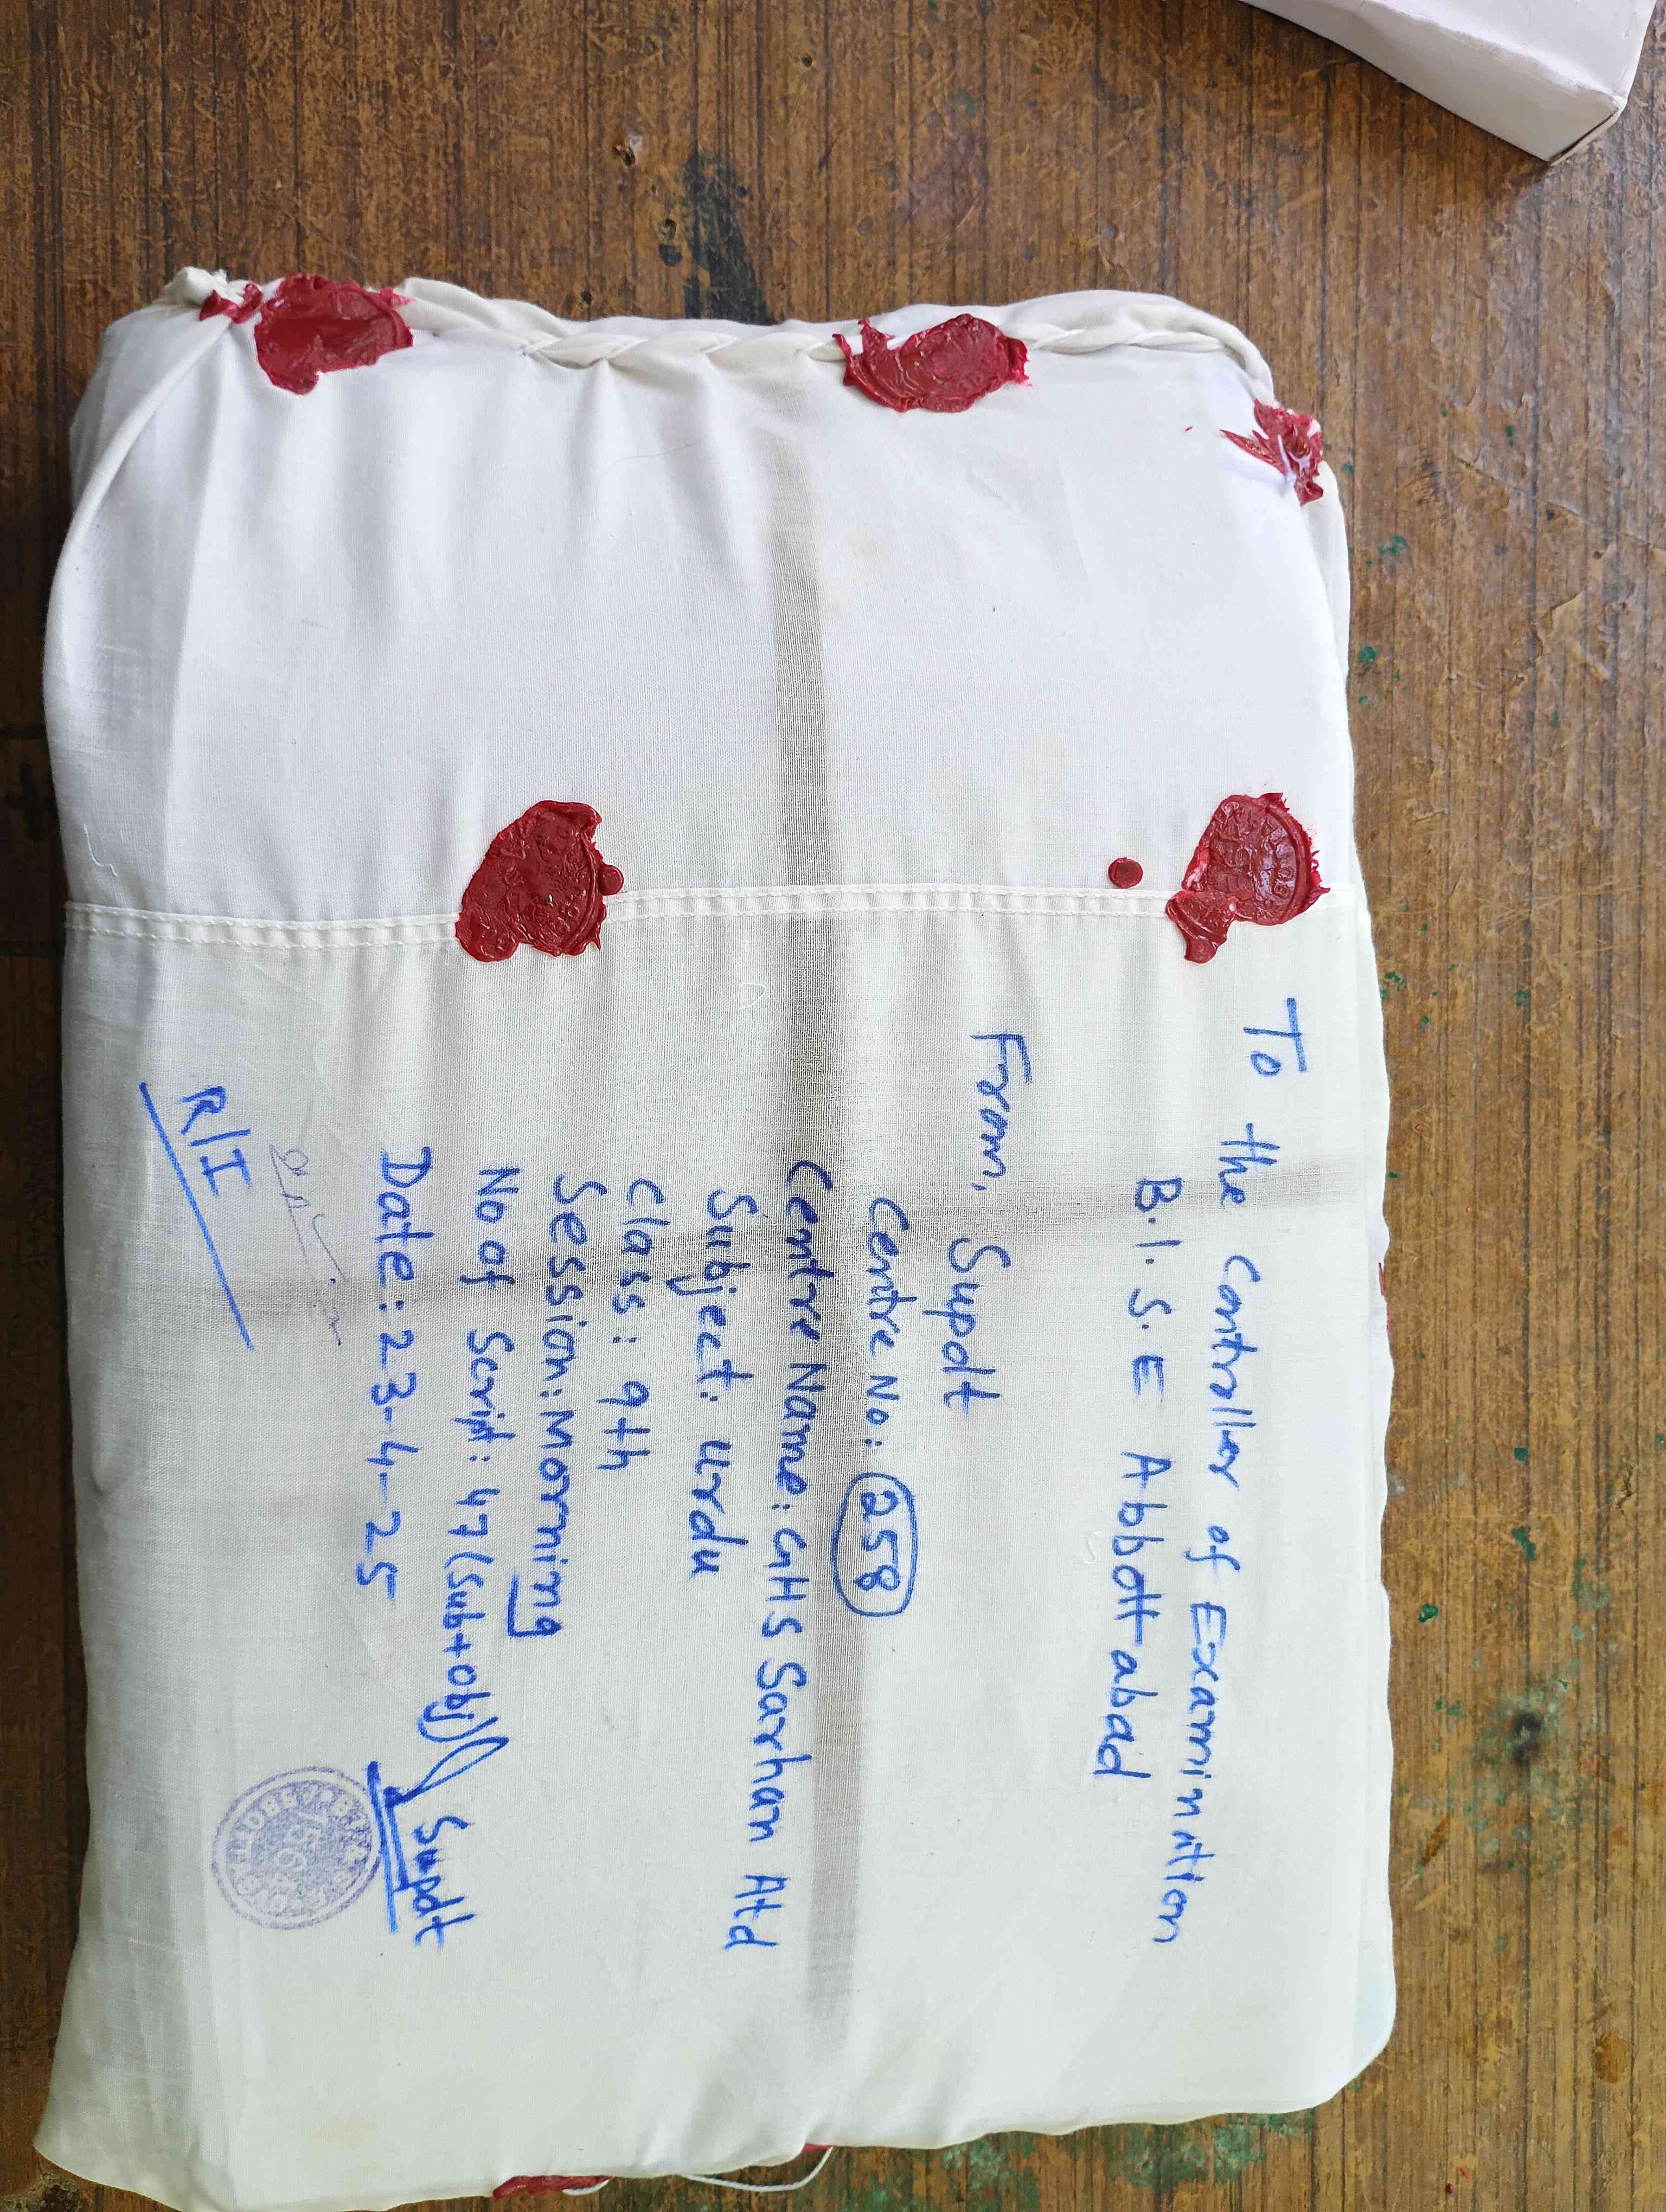 To the Controller of Examination
B.I.S.E Abbottabad
From, Supdt
Centre No: 258
Centre Name: GHS Sarhan Atd
Subject: Urdu
Class: 9th
Session: Morning
No of Script: 47 (Sub+obj)
Supdt
Date: 23-4-25
R/I